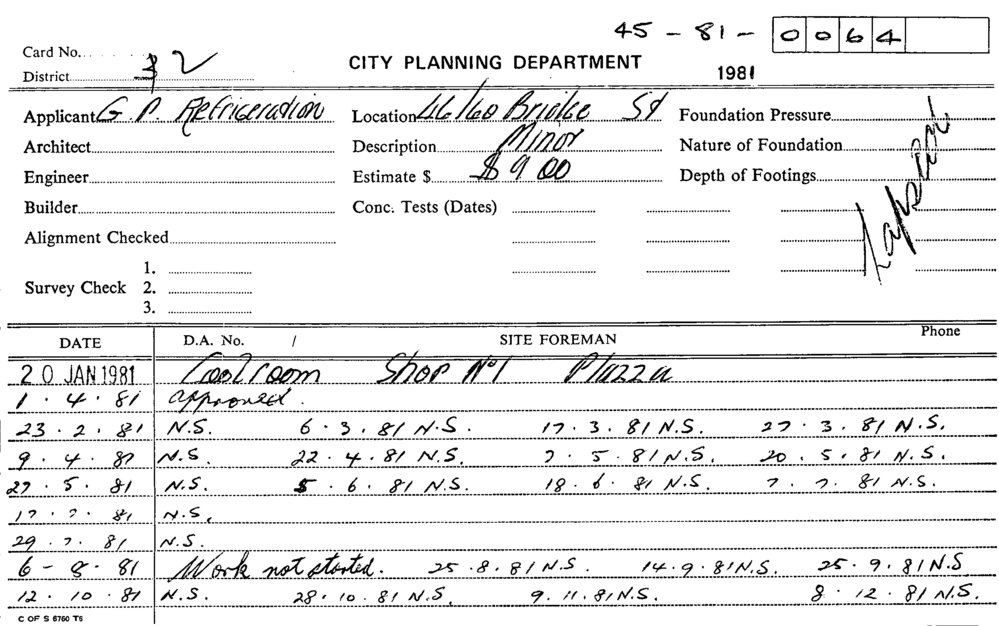 45 - 81 - 0064
Card No.
District 32
CITY PLANNING DEPARTMENT
1981
Applicant G. P. Refrigeration Location 46/60 Bridge St Foundation Pressure
Architect Description Minor Nature of Foundation
Engineer Estimate $ $900 Depth of Footings
Builder Conc. Tests (Dates)
Alignment Checked
1.
Survey Check 2.
3.
DATE D.A. No. / SITE FOREMAN Phone
20 JAN 1981 Coolroom Shop No 1 Plazza
1 . 4 . 81 approved.
23 . 2 . 81 N.S. 6 . 3 . 81 N.S. 17 . 3 . 81 N.S. 27 . 3 . 81 N.S.
9 . 4 . 81 N.S. 22 . 4 . 81 N.S. 7 . 5 . 81 N.S. 20 . 5 . 81 N.S.
27 . 5 . 81 N.S. 5 . 6 . 81 N.S. 18 . 6 . 81 N.S. 7 . 7 . 81 N.S.
17 . 7 . 81 N.S.
29 . 7 . 81 N.S.
6 - 8 . 81 Work not started. 25 . 8 . 81 N.S. 14 . 9 . 81 N.S. 25 . 9 . 81 N.S
12 . 10 . 81 N.S. 28 . 10 . 81 N.S. 9 . 11 . 81 N.S. 8 . 12 . 81 N.S.
C OF S 6760 T5